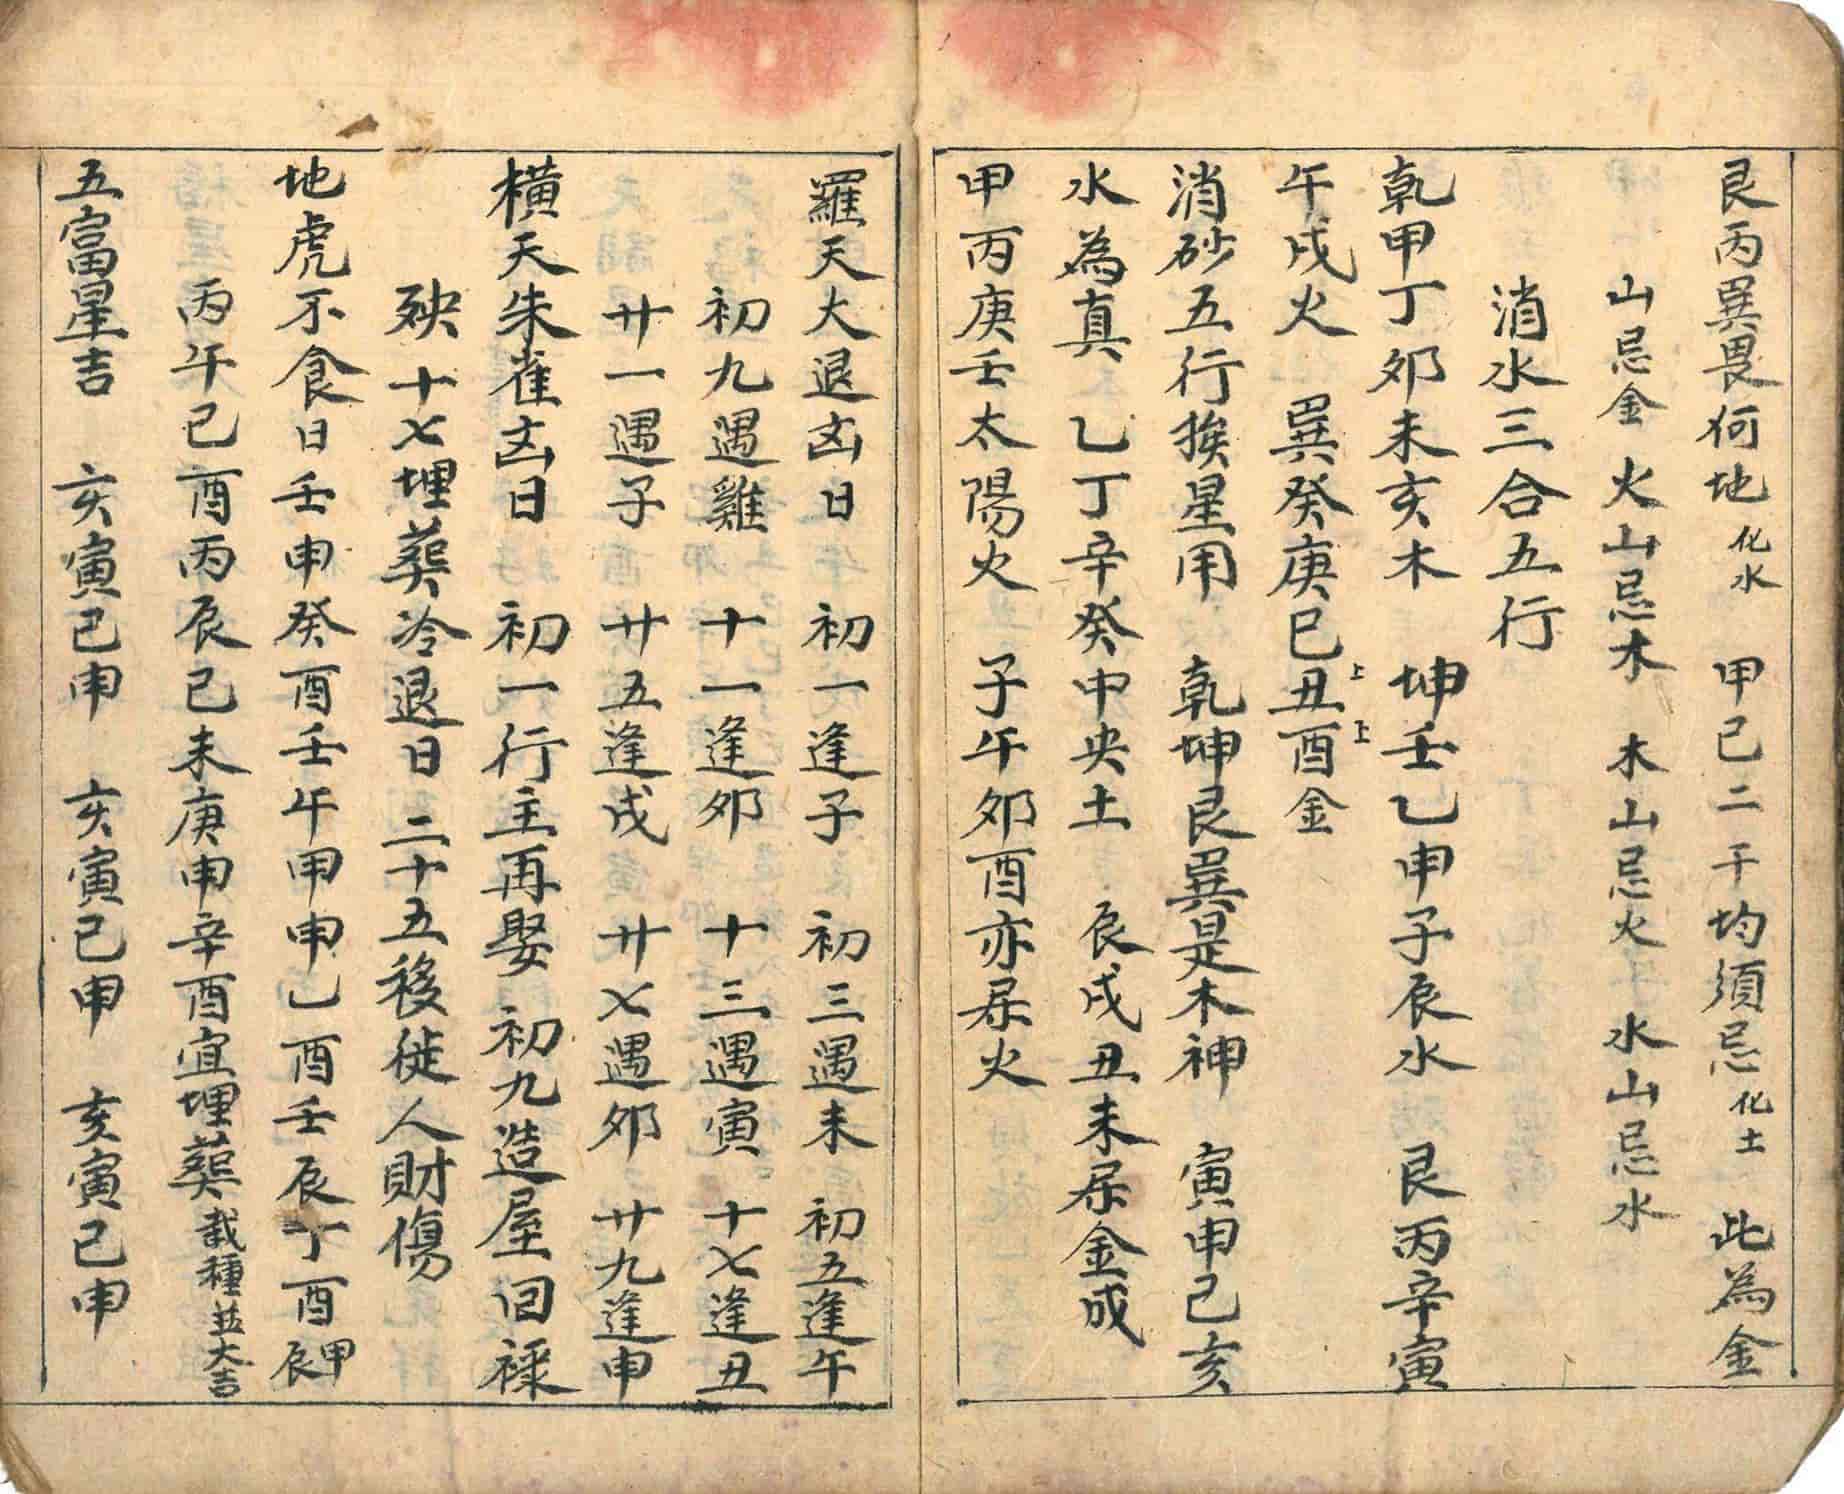 艮丙巽畏何地化水 甲己二干均須忌化土 此為金
山忌金 火山忌木 木山忌火 水山忌水
消水三合五行
乾甲丁卯未亥木 坤壬乙申子辰水 艮丙辛寅
午戌火 巽癸庚巳丑酉金 上 上
消砂五行挨星用 乾坤艮巽是木神 寅申己亥
水為真 乙丁辛癸中央土 辰戌丑未屬金成
甲丙庚壬太陽火 子午卯酉亦屬火
羅天大退凶日 初一逢子 初三遇未 初五逢午
初九遇雞 十一逢卯 十三遇寅 十七逢丑
廿一遇子 廿五逢戌 廿七遇卯 廿九逢申
橫天朱雀凶日 初一行主再娶 初九造屋回祿
殃 十七埋葬冷退日 二十五移徙人財傷
地虎不食日 壬申癸酉壬午甲申乙酉壬辰丁酉甲辰
丙午己酉丙辰己未庚申辛酉宜埋葬栽種並大吉
五富星吉 亥寅己申 亥寅己申 亥寅己申